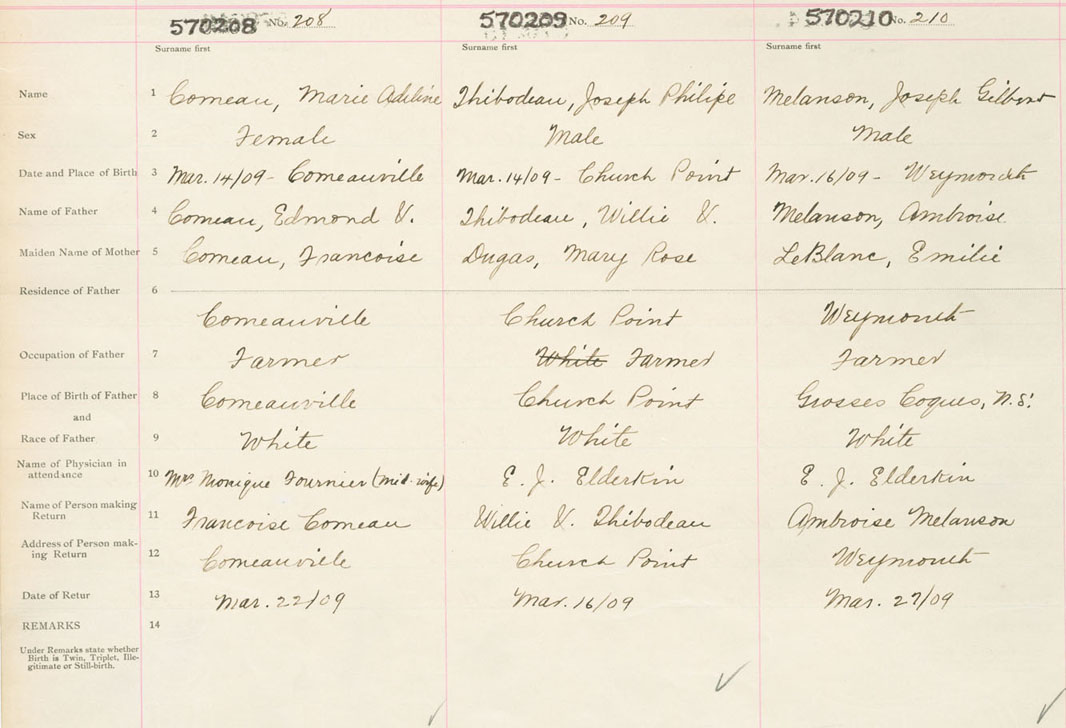 570208 No. 208 570209 No. 209 570210 No. 210
Surname first Surname first Surname first
Name 1 Comeau, Marie Adeline Thibodeau, Joseph Philipe Melanson, Joseph Gilbert
Sex 2 Female Male Male
Date and Place of Birth 3 Mar. 14/09 - Comeauville Mar. 14/09 - Church Point Mar. 16/09 - Weymouth
Name of Father 4 Comeau, Edmond V. Thibodeau, Willie V. Melanson, Ambroise
Maiden Name of Mother 5 Comeau, Francoise Dugas, Mary Rose LeBlanc, Emilie
Residence of Father 6
Comeauville Church Point Weymouth
Occupation of Father 7 Farmer White Farmer Farmer
Place of Birth of Father 8 Comeauville Church Point Grosses Coques, N.S.
and
Race of Father 9 White White White
Name of Physician in
attendance 10 Mrs Monique Fournier (mid-wife) E. J. Elderkin E. J. Elderkin
Name of Person making
Return 11 Francoise Comeau Willie V. Thibodeau Ambroise Melanson
Address of Person mak-
ing Return 12 Comeauville Church Point Weymouth
Date of Retur 13 Mar. 22/09 Mar. 16/09 Mar. 27/09
REMARKS 14
Under Remarks state whether
Birth is Twin, Triplet, Ille-
gitimate or Still-birth.